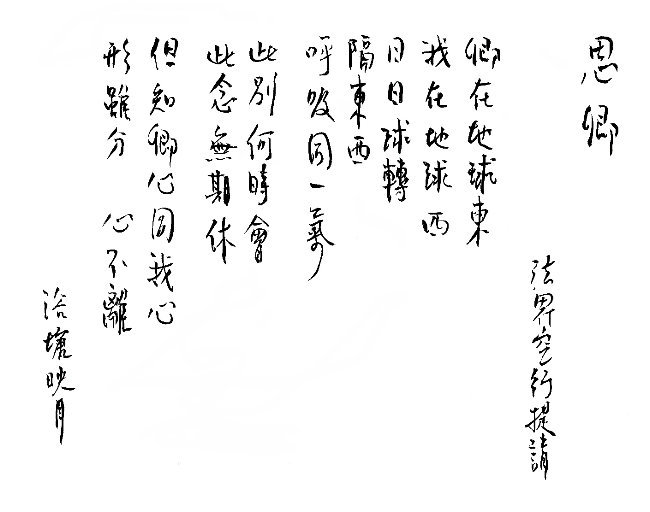 思卿
法界空行提請
卿在地球東
我在地球西
日日球轉
隔東西
呼吸同一氣
此別何時會
此念無期休
但知卿心同我心
形雖分 心不離
浴塘映月